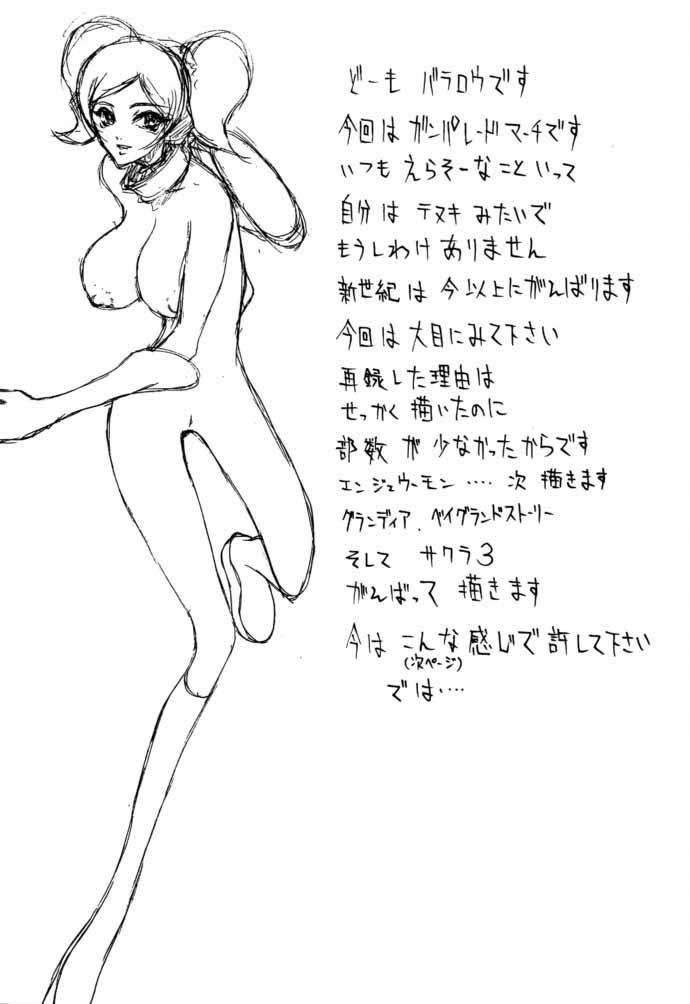 どーも バラロウです
今回は ガンパレードマーチです
いつも えらそーなこといって
自分は テヌキ みたいで
もうしわけ ありません
新世紀は 今以上にがんばります
今回は 大目にみて下さい
再録した理由は
せっかく 描いたのに
部数 が 少なかったからです
エンジェウーモン ‥‥ 次 描きます
グランディア．ベイグランドストーリー
そして サクラ3
がんばって 描きます
今は こんな感じで 許して下さい
(次ページ)
では‥‥